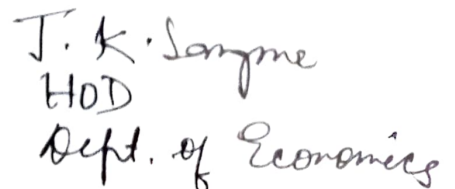 J. K. Sangme
HOD
Dept. of Economics